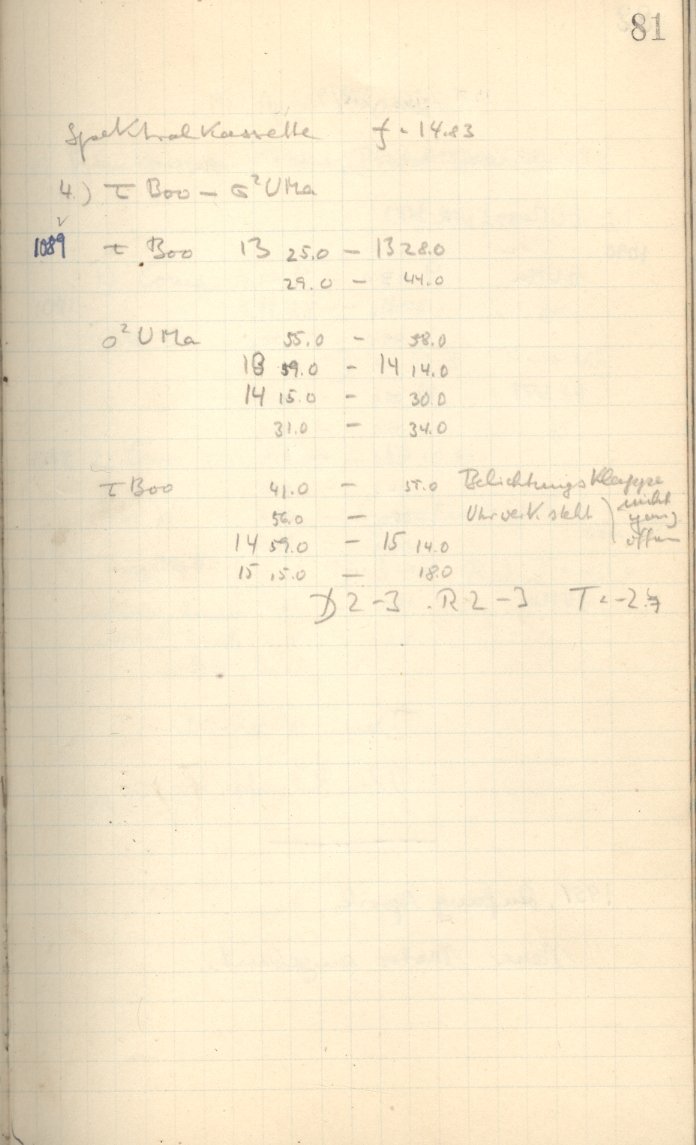 81
Spektralkassette f = 14.83
4.) τ Boo – σ²UMa
1089 τ Boo 13 25.0 – 13 28.0
29.0 – 44.0
σ² UMa 55.0 – 58.0
13 59.0 – 14 14.0
14 15.0 – 30.0
31.0 – 34.0
τ Boo 41.0 – Belichtungsklappe
56.0 – Uhrwerk steht nicht
ganz
offen
14 59.0 – 15 14.0
15 15.0 – 18.0
D 2-3 . R 2-3 T =